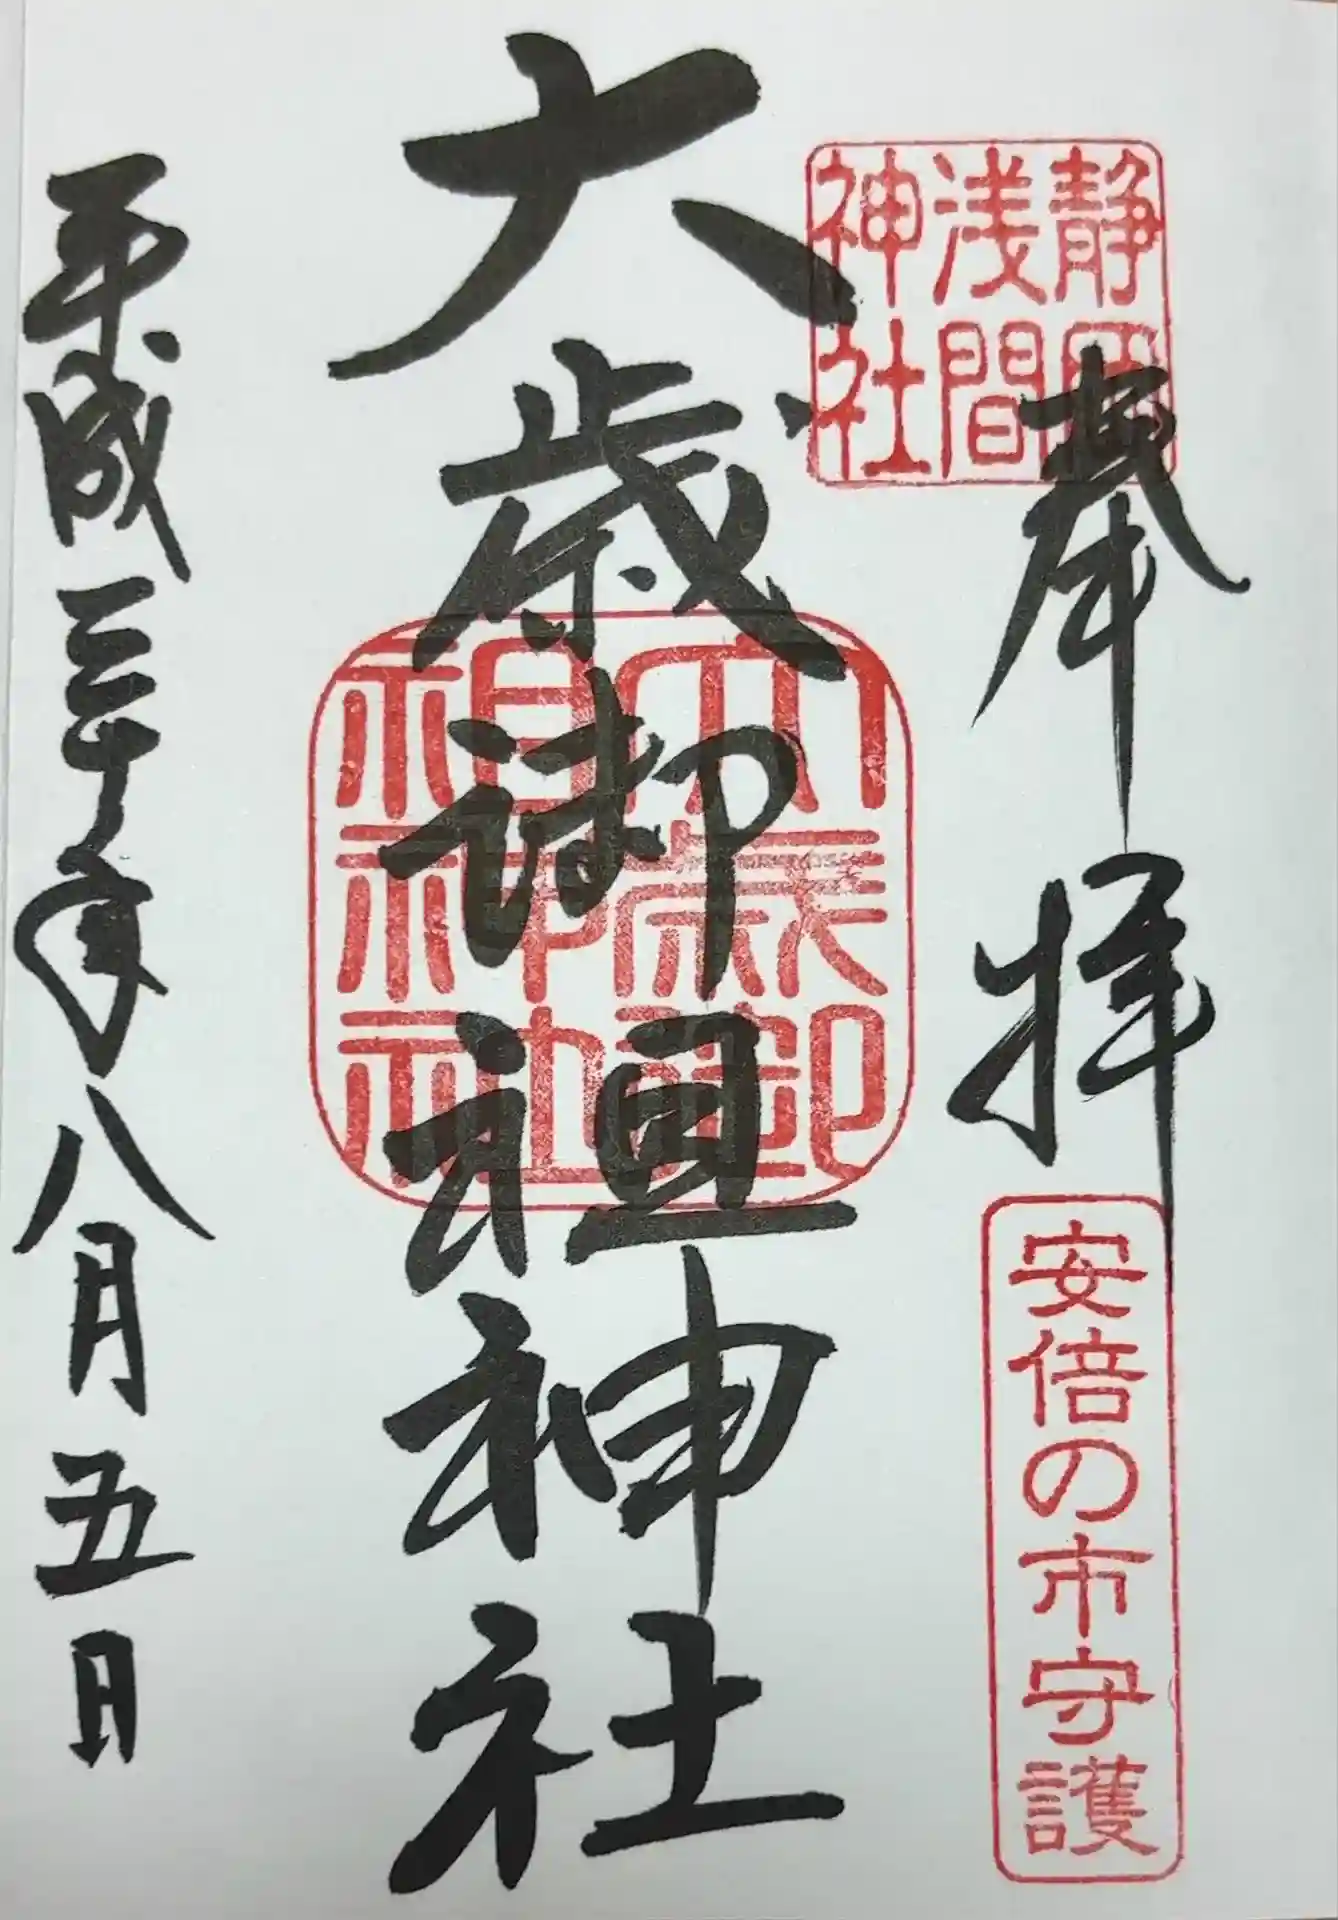 奉拝
静岡
浅間
神社
安倍の市守護
大歳御祖神社
大歳御
祖神社
平成三十年八月五日